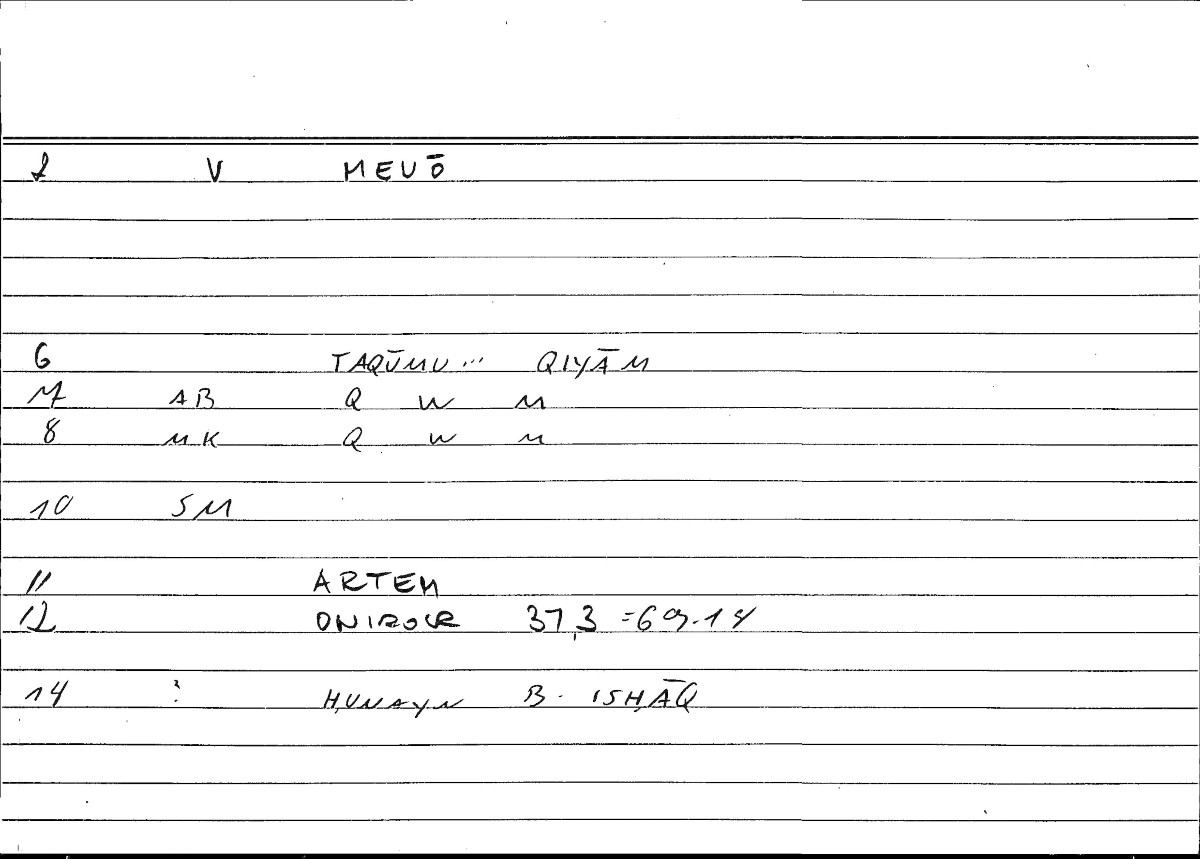 2 V MEVŌ
6 TAQŪMU... QIYĀM
7 AB Q W M
8 MK Q W M
10 SM
11 ARTEM
12 ONIROCR 37,3 = 69.14
14 ? ḤUNAYN B. ISḤĀQ